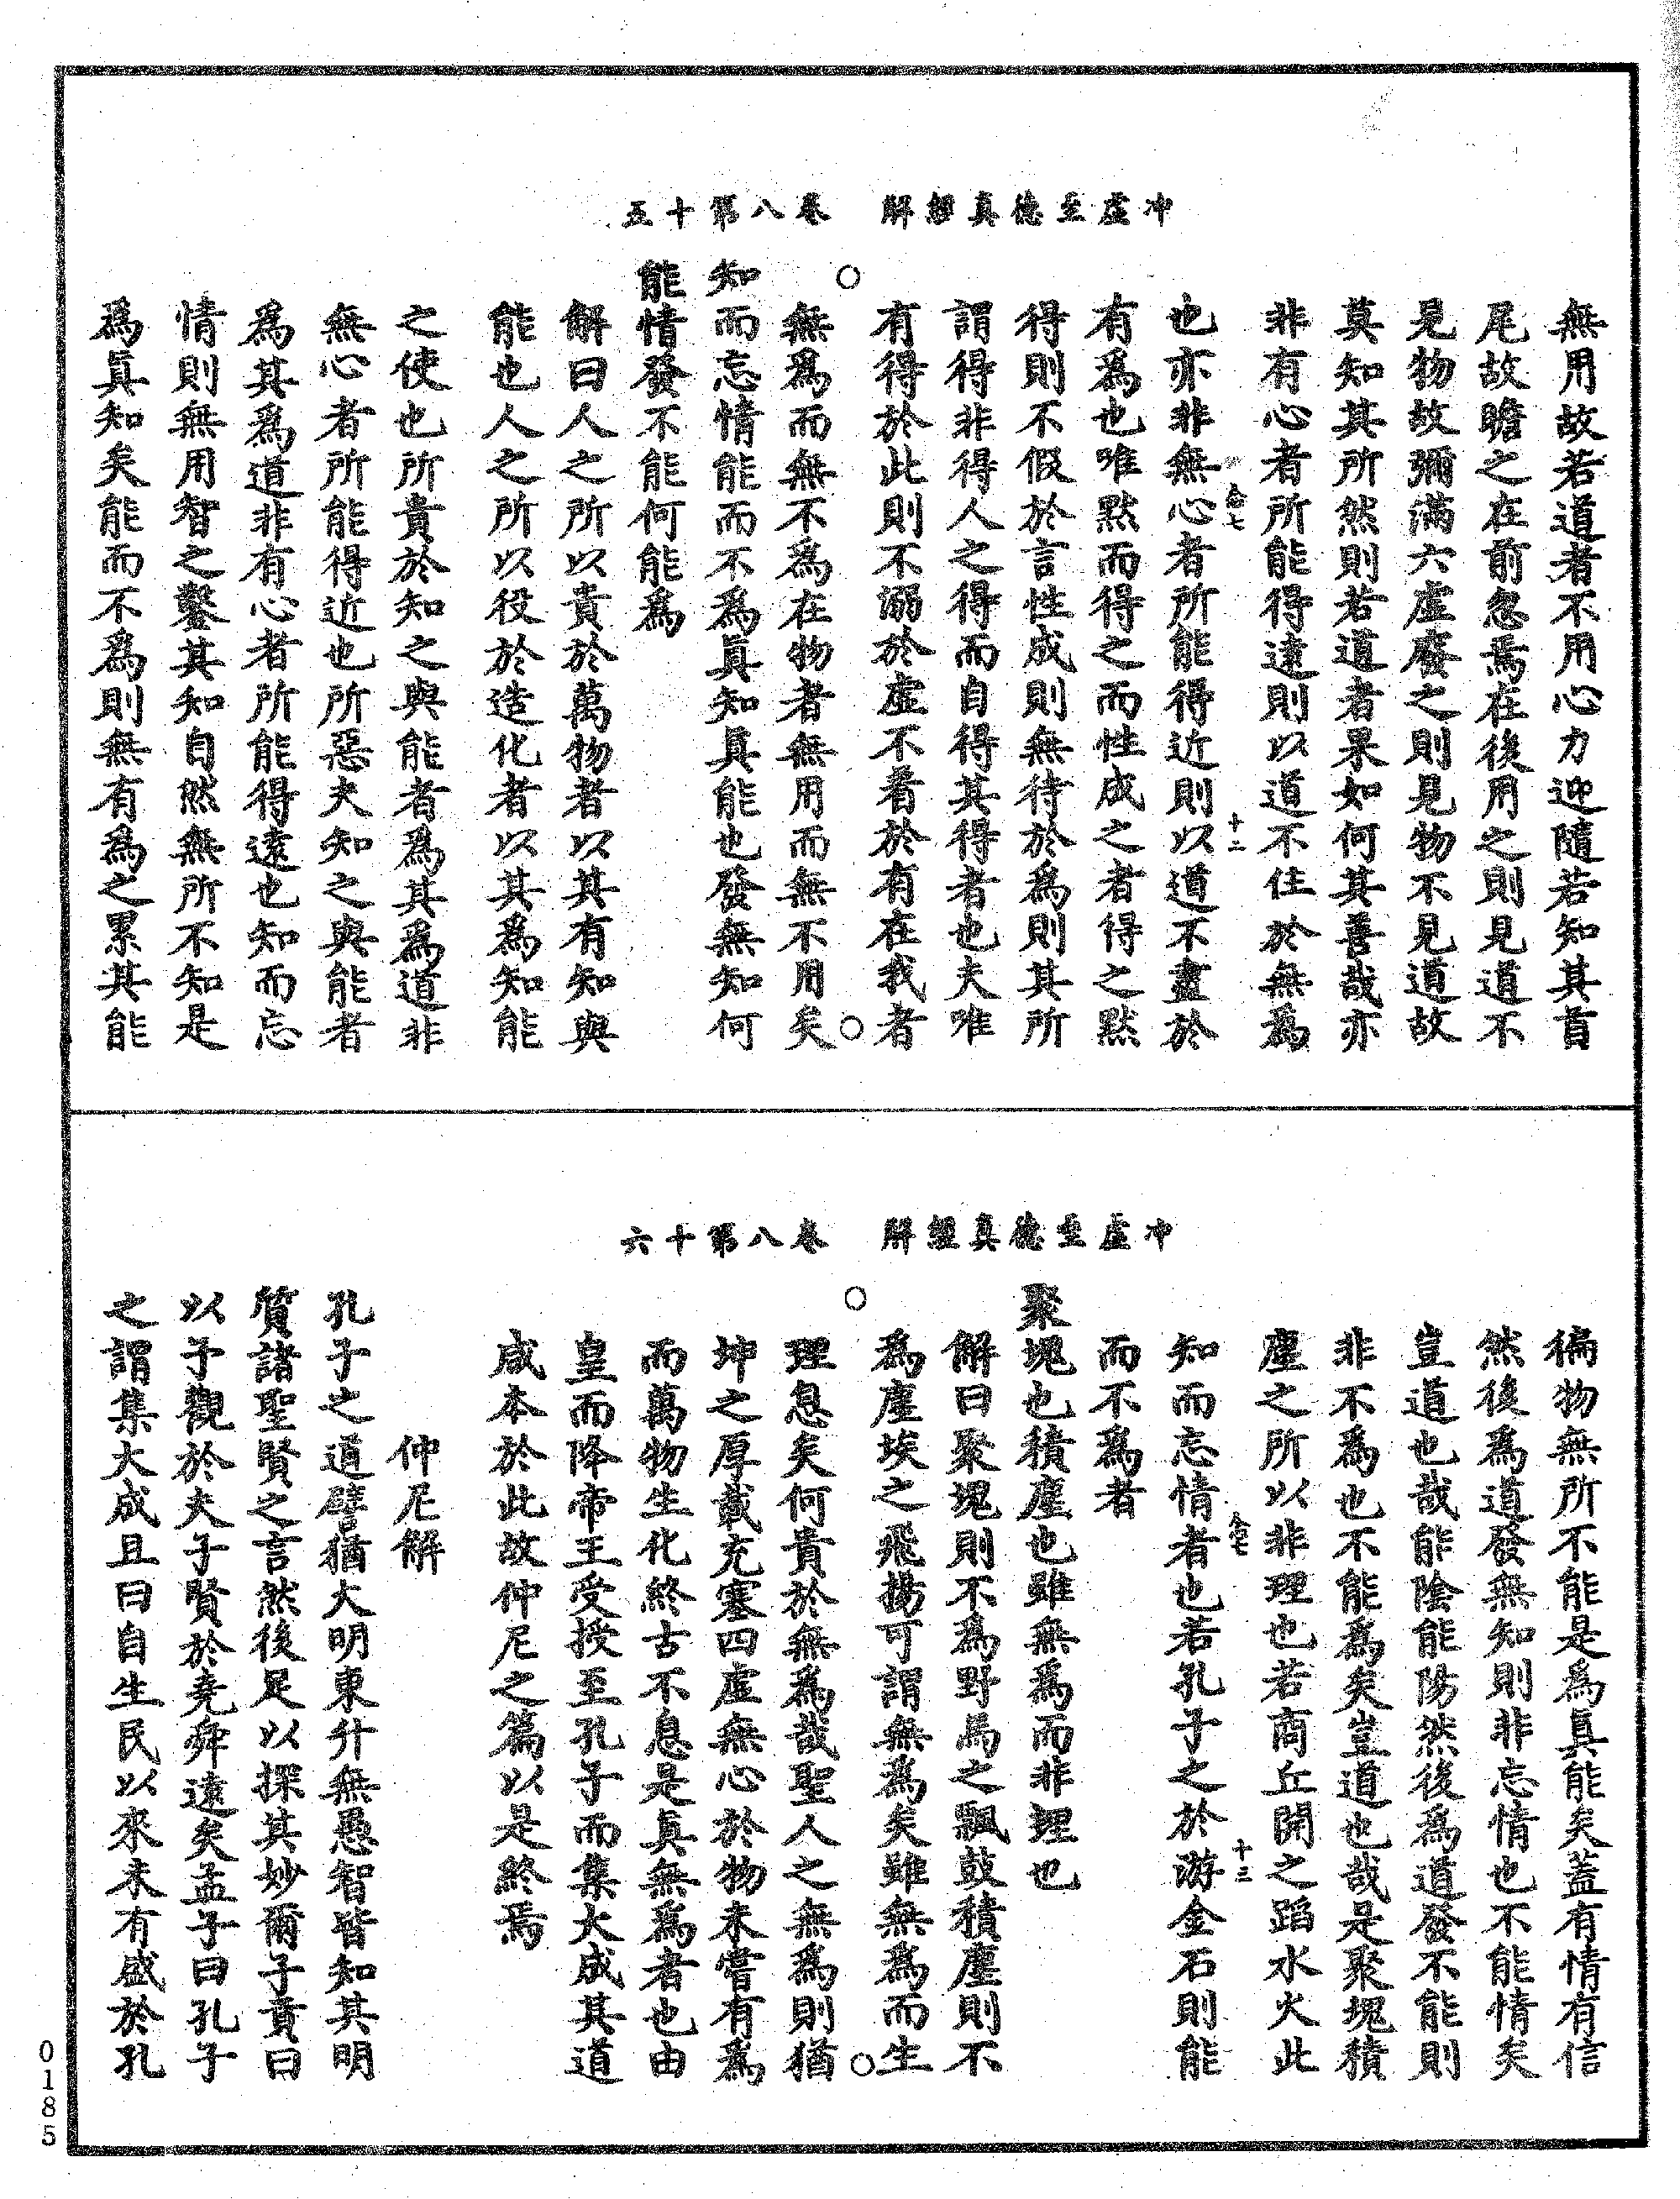 冲虛至德真經解　卷八第十五
無用故若道者不用心力迎隨若知其首
尾故瞻之在前忽焉在後用之則見道不
見物故彌滿六虛廢之則見物不見道故
莫知其所然則若道者果如何其善哉亦
非有心者所能得遠則以道不住於無為
也亦非無心者所能得近則以道不盡於
有為也唯黙而得之而性成之者得之黙
得則不假於言性成則無待於為則其所
謂得非得人之得而自得其得者也夫唯
有得於此則不溺於虛不著於有在我者
無為而無不為在物者無用而無不用矣
知而忘情能而不為真知真能也發無知何
能情發不能何能為
解曰人之所以貴於萬物者以其有知與
能也人之所以役於造化者以其為知能
之使也所貴於知之與能者為其為道非
無心者所能得近也所惡夫知之與能者
為其為道非有心者所能得遠也知而忘
情則無用智之鑿其知自然無所不知是
為真知矣能而不為則無有為之累其能
冲虛至德真經解　卷八第十六
徧物無所不能是為真能矣蓋有情有信
然後為道發無知則非忘情也不能情矣
豈道也哉能陰能陽然後為道發不能則
非不為也不能為矣豈道也哉是聚塊積
塵之所以非理也若商丘開之蹈水火此
知而忘情者也若孔子之於游金石則能
而不為者
聚塊也積塵也雖無為而非理也
解曰聚塊則不為野馬之飄鼓積塵則不
為塵埃之飛揚可謂無為矣雖無為而生
理息矣何貴於無為哉聖人之無為則猶
坤之厚載充塞四虛無心於物未嘗有為
而萬物生化終古不息是真無為者也由
皇而降帝王受授至孔子而集大成其道
咸本於此故仲尼之篇以是終焉
仲尼解
孔子之道譬猶大明東升無愚智皆知其明
質諸聖賢之言然後足以探其妙爾子貢曰
以予觀於夫子賢於堯舜遠矣孟子曰孔子
之謂集大成且曰自生民以來未有盛於孔
0185